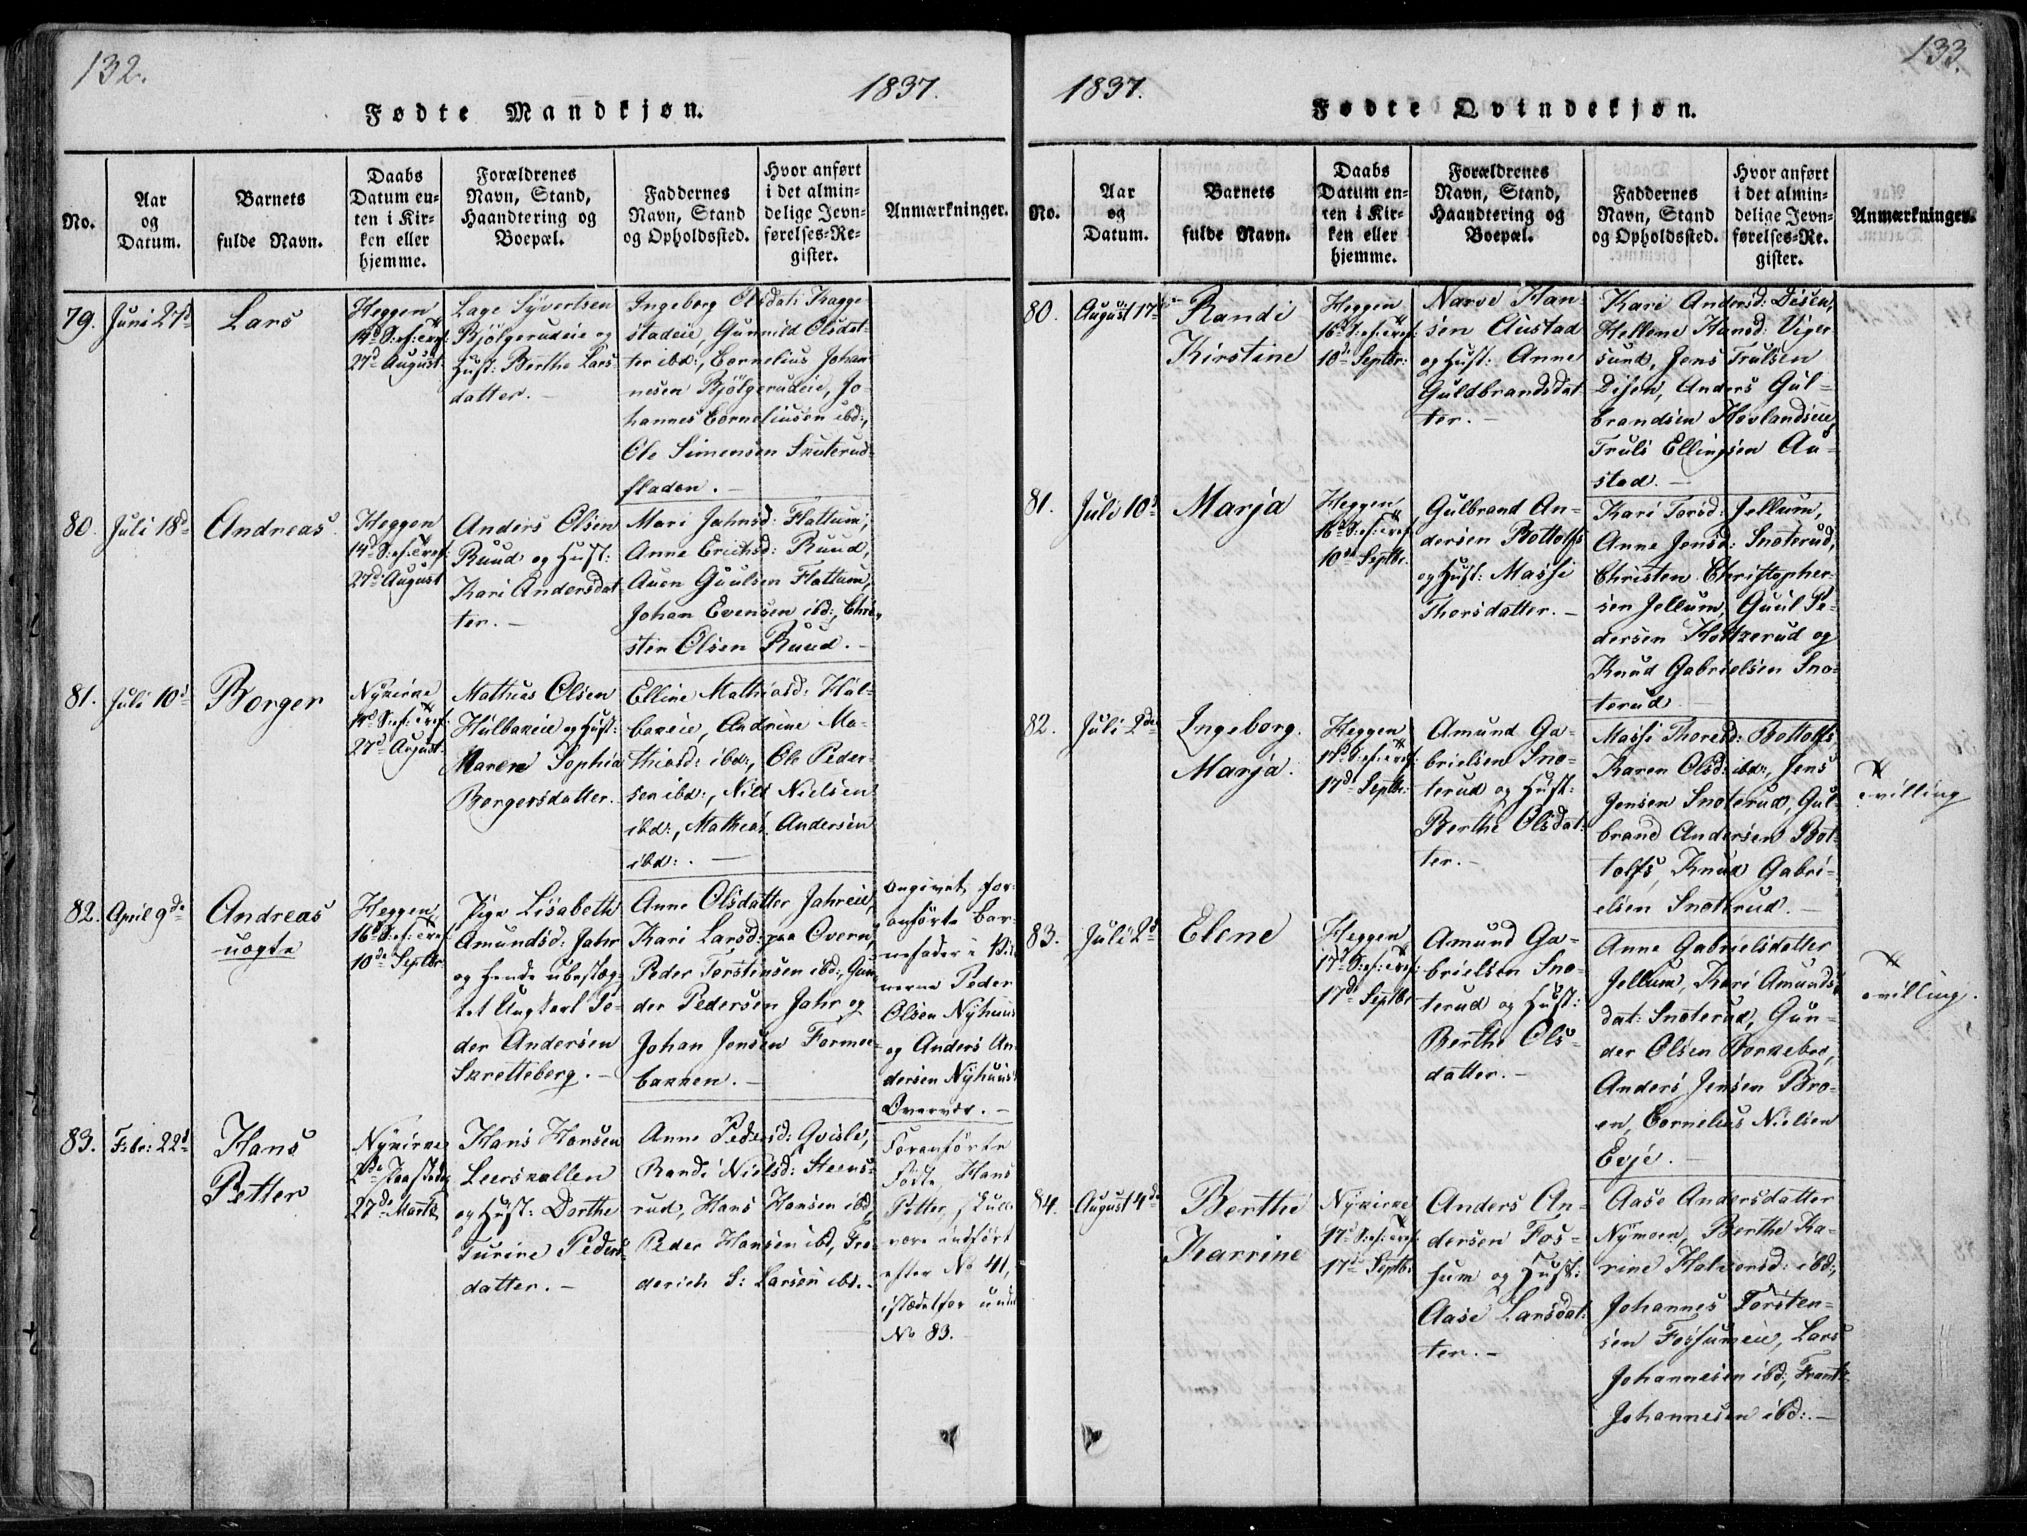 132.
1837.
Fødte Mandkjøn.
No.
Aar
og
Datum.
Barnets
fulde Navn.
Daabs
Datum en-
ten i Kir-
ken eller
hjemme.
Forældrenes
Navn, Stand,
Haandtering og
Boepæl.
Faddernes
Navn, Stand
og Opholdssted.
Hvor anført
i det almin-
delige Jevn-
førelses-Re-
gister.
Anmærkninger.
79. Juni 27d
Lars
Heggen
14d S: ef: Tref:
27d August
Lage Syvertsen
Bjölgerudeie og
Hust: Berthe Lars
datter. -
Ingeborg Olsdatt: Kagge-
stadeie, Gunnild Olsdat-
ter ibd:, Cornelius Johan
nesen Bjölgerudeie, Jo-
hannes Corneliusen ibd:,
Ole Simensen Snoterud-
fladen. -
80. Juli 18d
Andreas
Heggen
14d S: ef: Tref:
27d August
Anders Olsen
Ruud og Hust:
Kari Andersdat
ter. -
Mari Jahnsd: Flattum,
Anne Erichsd: Ruud,
Auen Guulsen Flattum
Johan Evensen ibd:, Chri-
sten Olsen Ruud. -
81. Juli 10d
Borger
Nykirke
14d S: ef: Tref:
27d August
Mathias Olsen
Hulbakeie og Hust:
Maren Sophia
Borgersdatter.
Elline Mathiasd: Hul-
bakeie, Andrine Ma-
thiasd: ibd:, Ole Peder-
sen ibd:, Nils Nielsen
ibd:, Mathias Andersen
ibd:. -
82. April 9de
Andreas
uægte
Heggen
16d S: ef: Tref:
10de Septbr
Pige Lisabeth
Amundsd: Jahr
og hendes ubeslæg
tet Ungkarl Pe-
der Andersen
Skretteberg. -
Anne Olsdatter Jahreie,
Kari Larsd: paa Overn,
Peder Torstensen ibd:, Gun
der Pedersen Jahr og
Johan Jensen Formoe-
bakken. -
angivet for-
anførte Bar-
nefader i
Peder
Olsen Nyhuus
og Anders An-
dersen Nyhuus
83. Febr: 22d
Hans
Petter
Nykirke
2de Paaskedag
27de Marts
Hans Hansen
Leerskallen
og Hust: Dorthe
Turine Peders
datter. -
Anne Pedersd: Qvisle,
Randi Nielsd: Steens-
rud, Hans Hansen ibd,
Peder Hansen ibd, Fre-
derich S: Larsen ibd. -
Foranførte
Fødte, Hans
Petter, skulle
være indført
efter No 41,
istædetfor under
No 83.
133.
1837.
Fødte Qvindekjøn.
No.
Aar
og
Datum.
Barnets
fulde Navn.
Daabs
Datum en-
ten i Kir-
ken eller
hjemme.
Forældrenes
Navn, Stand,
Haandtering og
Boepæl.
Faddernes
Navn, Stand
og Opholdssted.
Hvor anført
i det almin-
delige Jevn-
førelses-Re-
gister.
Anmærkninger.
80. August 17de
Randi
Kirstine
Heggen
16d S: ef: Tref:
10d Septbr:
Narve Han-
sen Austad
og Hust: Anne
Guldbrandsdat
ter. -
Kari Andersd: Disen,
Hellene Hansd: Viger-
sund, Jens Trulsen
Disen, Anders Gul-
brandsen Hovlandseie,
Truls Ellingsen Au-
stad. -
81. Juli 10d
Marja
Heggen
16d S: ef: Tref:
10de Septbr.
Gulbrand An-
dersen Bottolfs
og Hust: Massi
Thorsdatter. -
Kari Torsd: Jellum,
Anne Jensd: Snoterud,
Christen Christopher-
sen Jellum, Guul Pe-
dersen Holtkerud og
Knud Gabrielsen Sno-
terud.
82. Juli 2de
Ingeborg
Marja.
Heggen
17d S: ef: Tref:
17d Septbr.
Amund Ga-
brielsen Sno-
terud og Hust:
Berthe Olsdat-
ter. -
Massi Thoresd: Bottolfs,
Karen Olsd: ibd:, Jens
Jensen Snoterud, Gul-
brand Andersen Bot-
tolfs, Knud Gabri-
elsen Snoterud. -
Tvilling
83. Juli 2d
Elene
Heggen
17d S: ef: Tref:
17de Septbr
Amund Ga-
brielsen Sno-
terud og Hust:
Berthe Ols-
datter. -
Anne Gabrielsdatter
Jellum, Kari Amunds-
dat: Snoterud, Gun-
der Olsen Borkebro,
Anders Jensen Bro-
en, Cornelius Nielsen
Evje. -
Tvilling.
84. August 4de
Berthe
Karrine
Nykirke
17d S: ef: Tref:
17d Septbr:
Anders An-
dersen Fos-
sum og Hust:
Aase Larsdat:
ter. -
Aase Andersdatter
Nymoen, Berthe Ka-
rine Halvorsd: ibd:,
Johannes Torsten-
sen Fossumeie, Lars
Johannesen ibd:, Frants
Johannesen ibd:. -